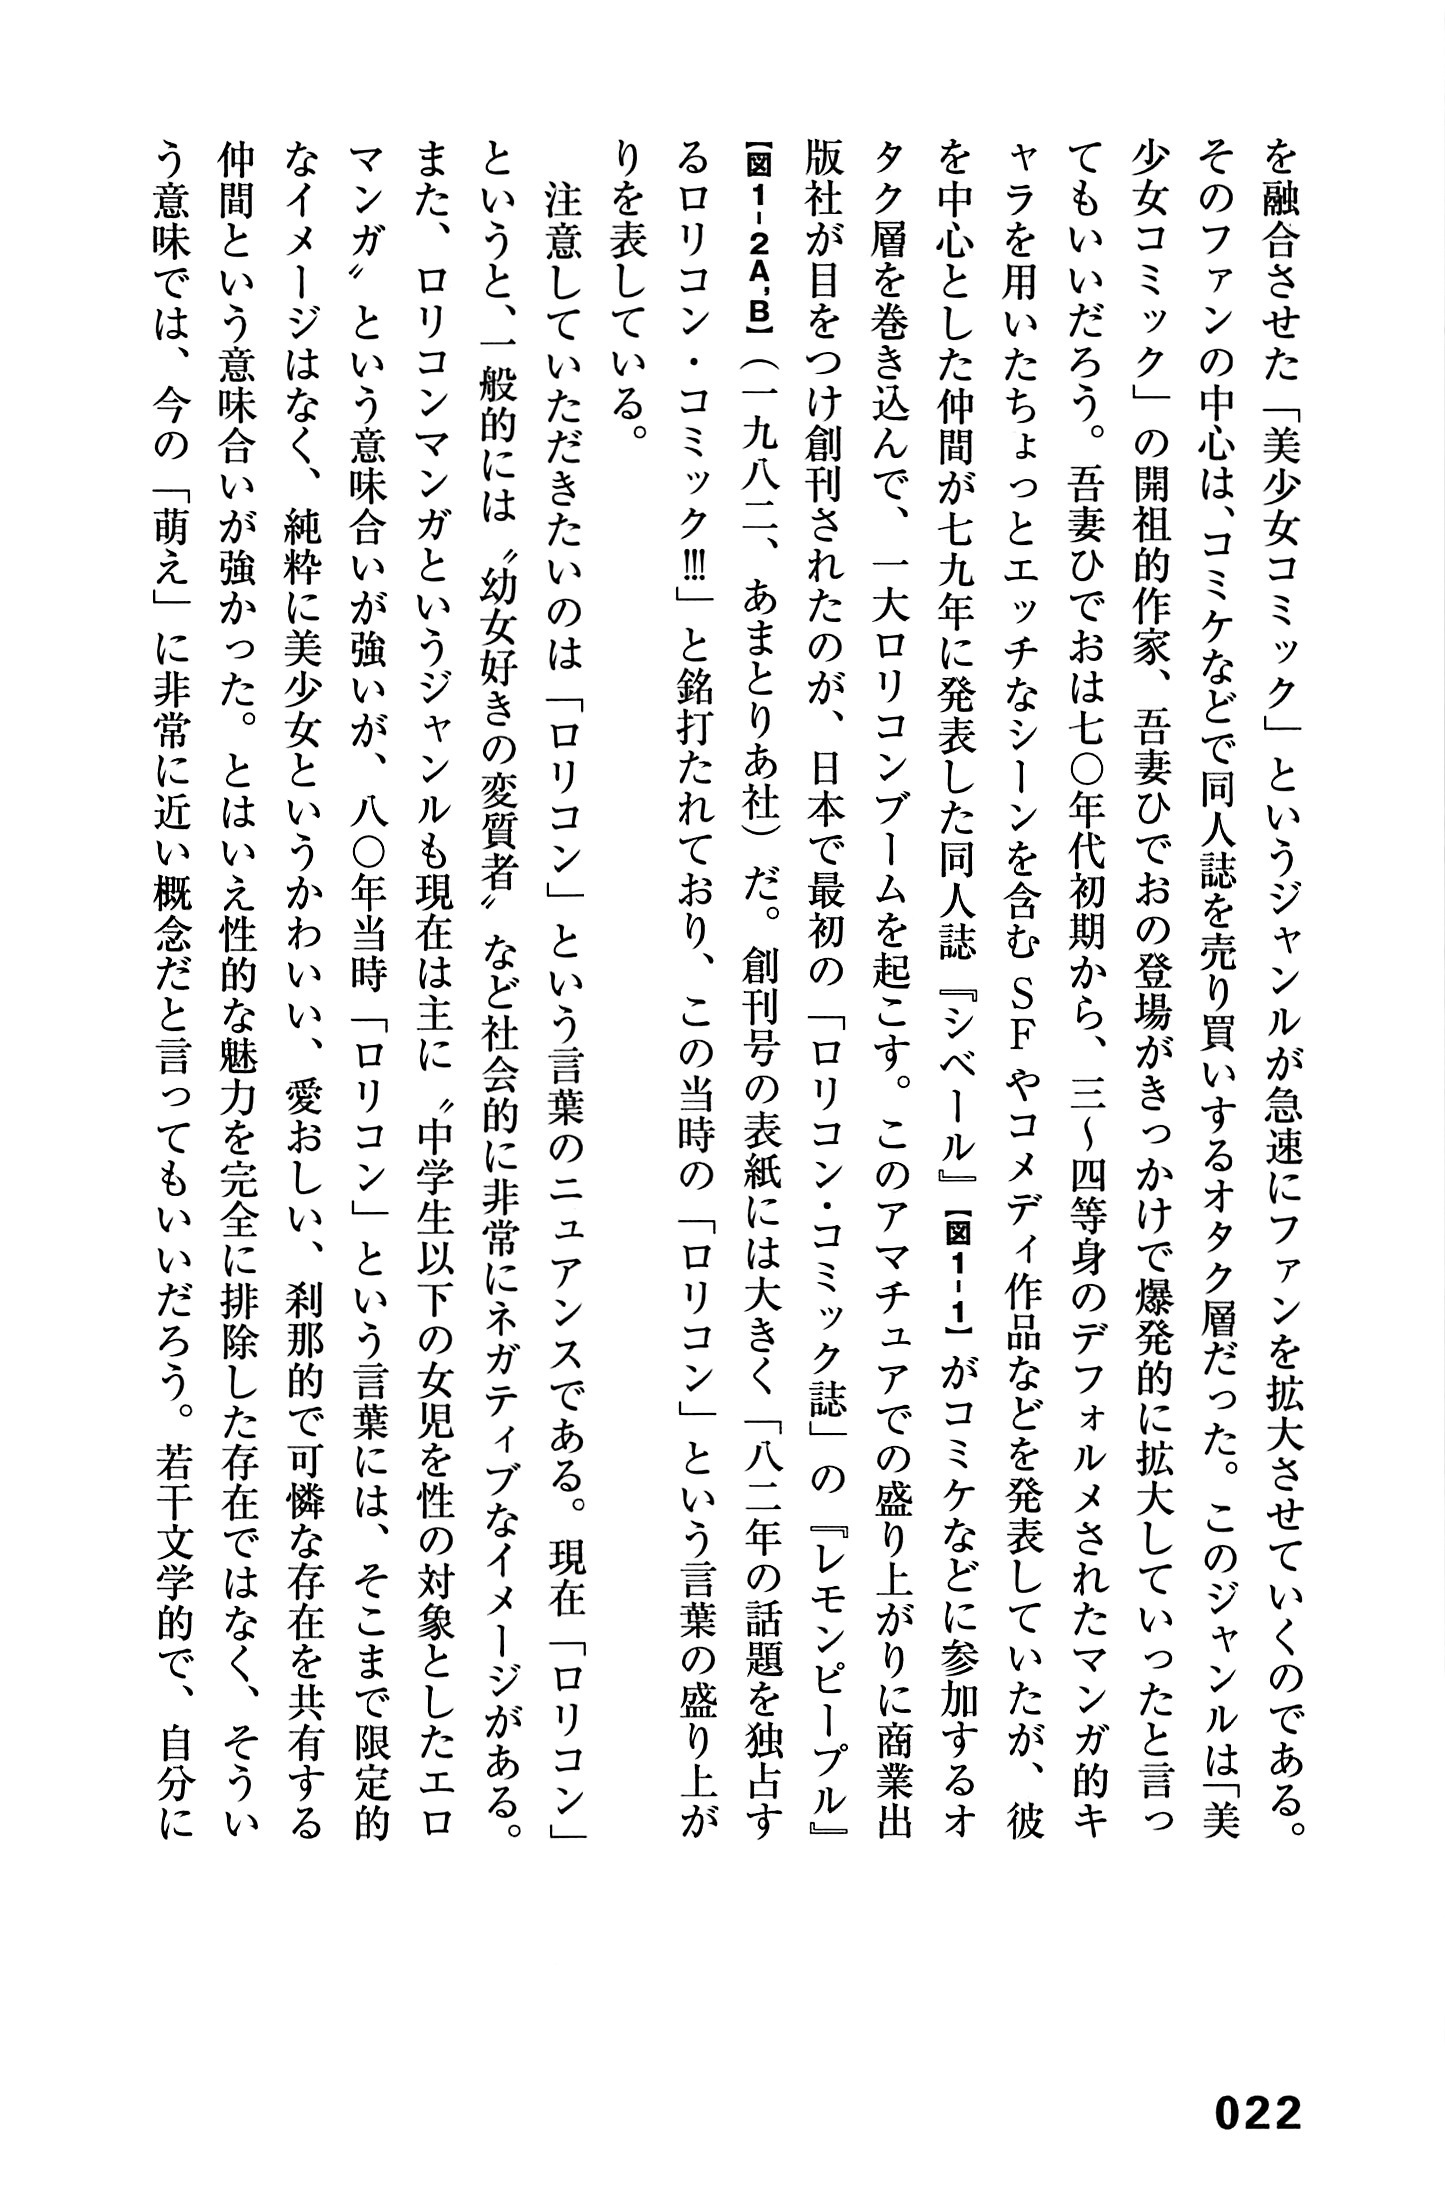 を融合させた「美少女コミック」というジャンルが急速にファンを拡大させていくのである。
そのファンの中心は、コミケなどで同人誌を売り買いするオタク層だった。このジャンルは「美
少女コミック」の開祖的作家、吾妻ひでおの登場がきっかけで爆発的に拡大していったと言っ
てもいいだろう。吾妻ひでおは七〇年代初期から、三〜四等身のデフォルメされたマンガ的キ
ャラを用いたちょっとエッチなシーンを含むSFやコメディ作品などを発表していたが、彼
を中心とした仲間が七九年に発表した同人誌『シベール』【図1-1】がコミケなどに参加するオ
タク層を巻き込んで、一大ロリコンブームを起こす。このアマチュアでの盛り上がりに商業出
版社が目をつけ創刊されたのが、日本で最初の「ロリコン・コミック誌」の『レモンピープル』
【図1-2A,B】（一九八二、あまとりあ社）だ。創刊号の表紙には大きく「八二年の話題を独占す
るロリコン・コミック!!!」と銘打たれており、この当時の「ロリコン」という言葉の盛り上が
りを表している。
　注意していただきたいのは「ロリコン」という言葉のニュアンスである。現在「ロリコン」
というと、一般的には〝幼女好きの変質者〟など社会的に非常にネガティブなイメージがある。
また、ロリコンマンガというジャンルも現在は主に〝中学生以下の女児を性の対象としたエロ
マンガ〟という意味合いが強いが、八〇年当時「ロリコン」という言葉には、そこまで限定的
なイメージはなく、純粋に美少女というかわいい、愛おしい、刹那的で可憐な存在を共有する
仲間という意味合いが強かった。とはいえ性的な魅力を完全に排除した存在ではなく、そうい
う意味では、今の「萌え」に非常に近い概念だと言ってもいいだろう。若干文学的で、自分に
022